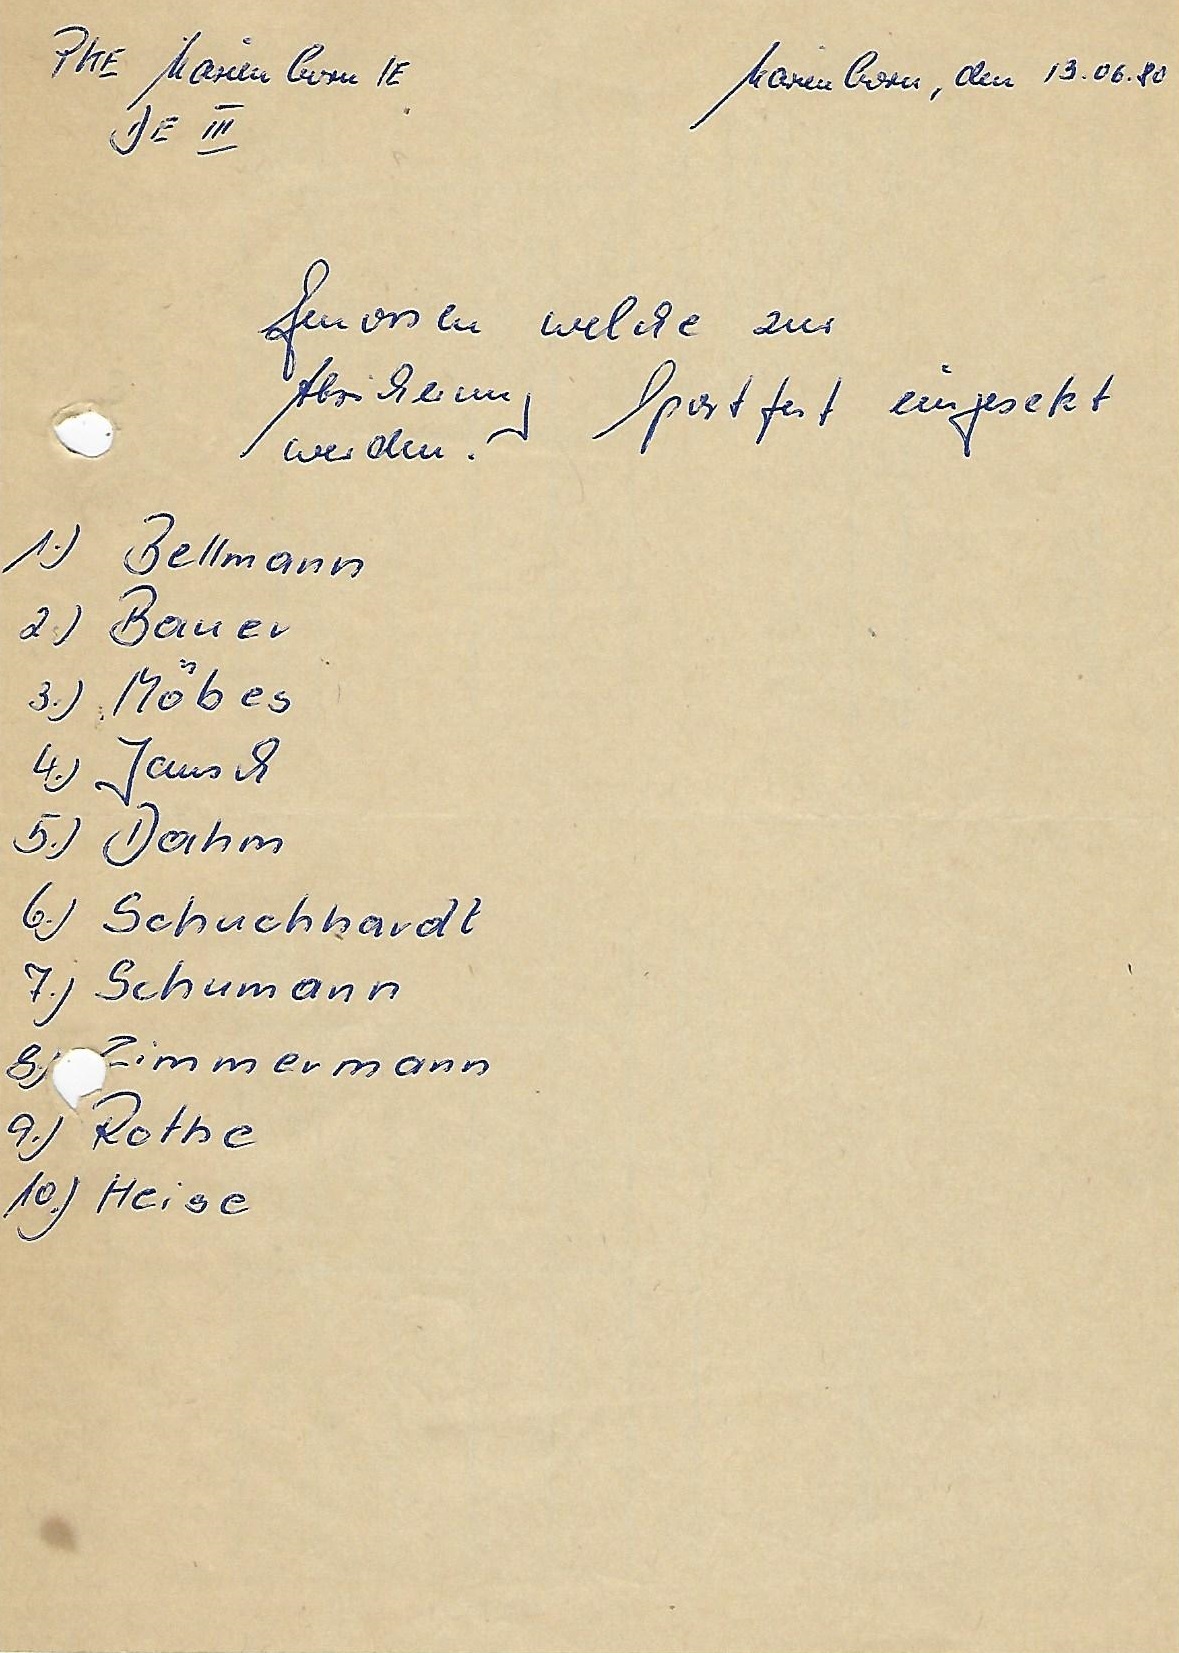 PKE Marienborn IE
Marienborn, den 13.06.80
DE III
Genossen welche zur
Absicherung Sportfest eingesetzt
werden.
1.) Bellmann
2.) Bauer
3.) Möbes
4.) Jansch
5.) Dahm
6.) Schuchhardt
7.) Schumann
8.) Zimmermann
9.) Rothe
10.) Heise